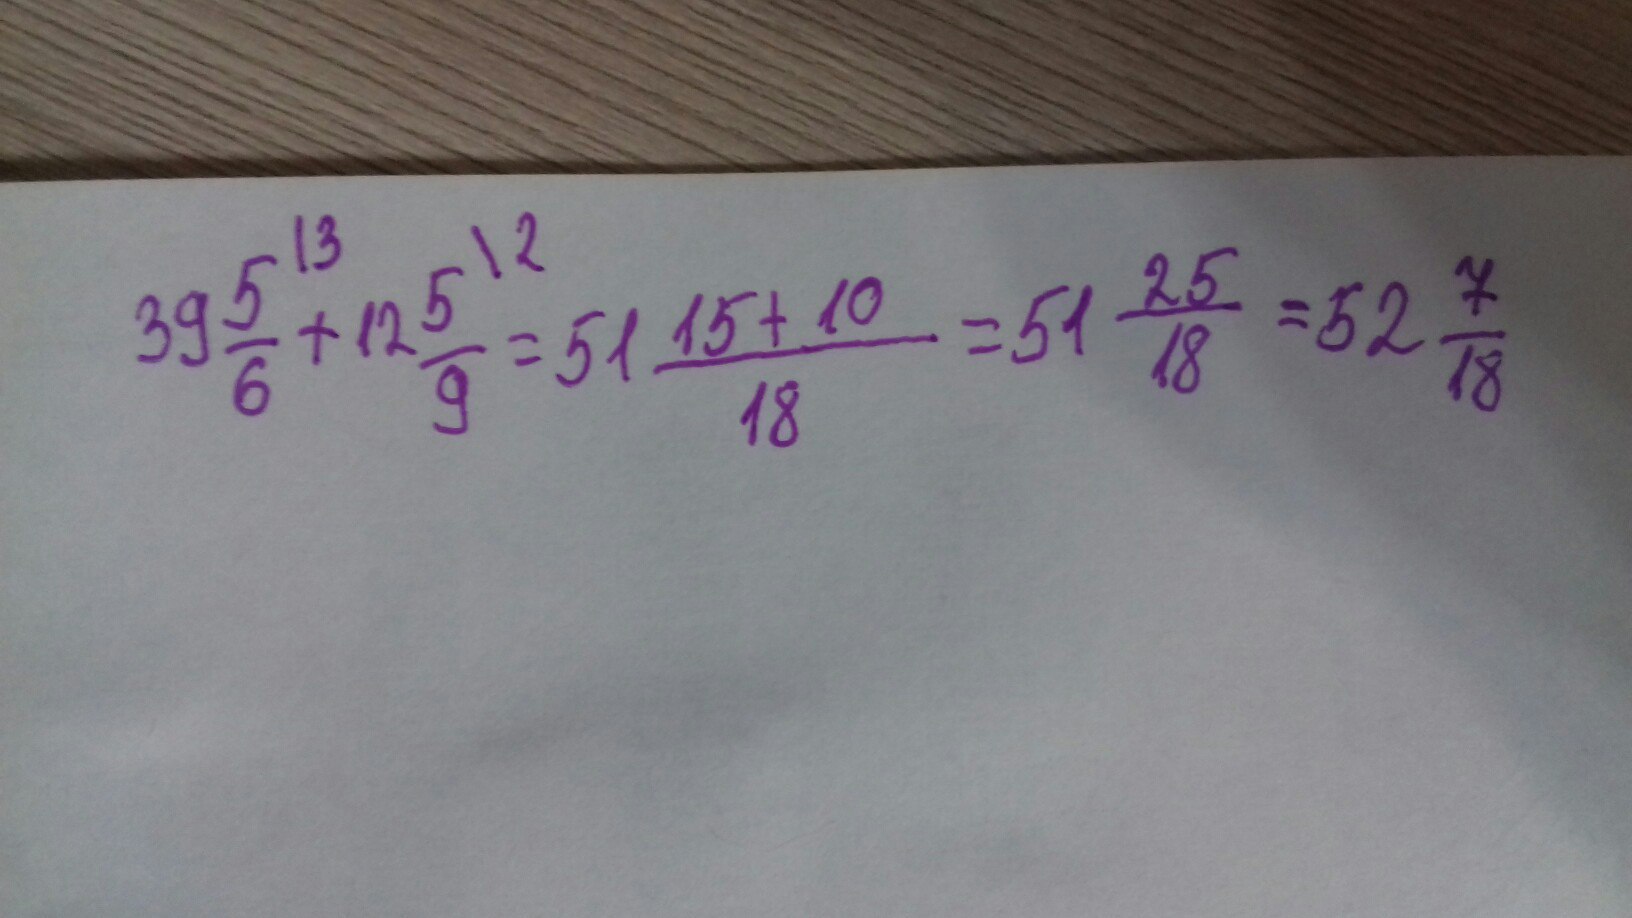 39 5/6 \3 + 12 5/9 \2 = 51 15+10/18 = 51 25/18 = 52 7/18